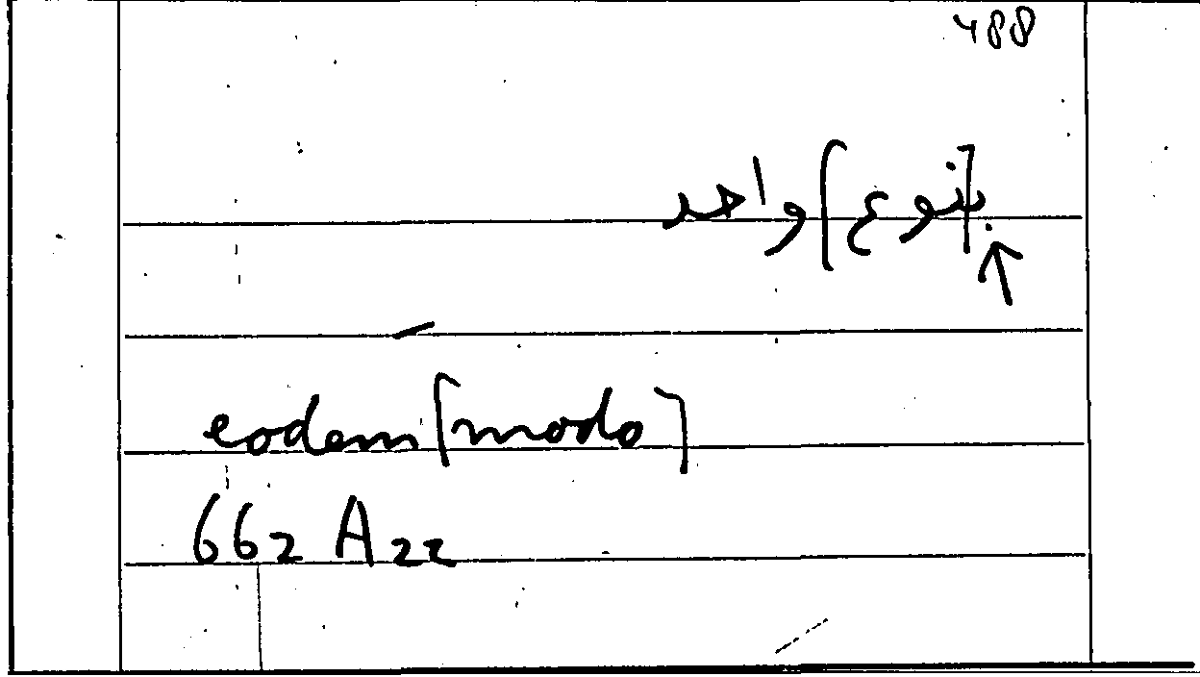 488
ب[نوع] واحد
eodem [modo]
662 A 22